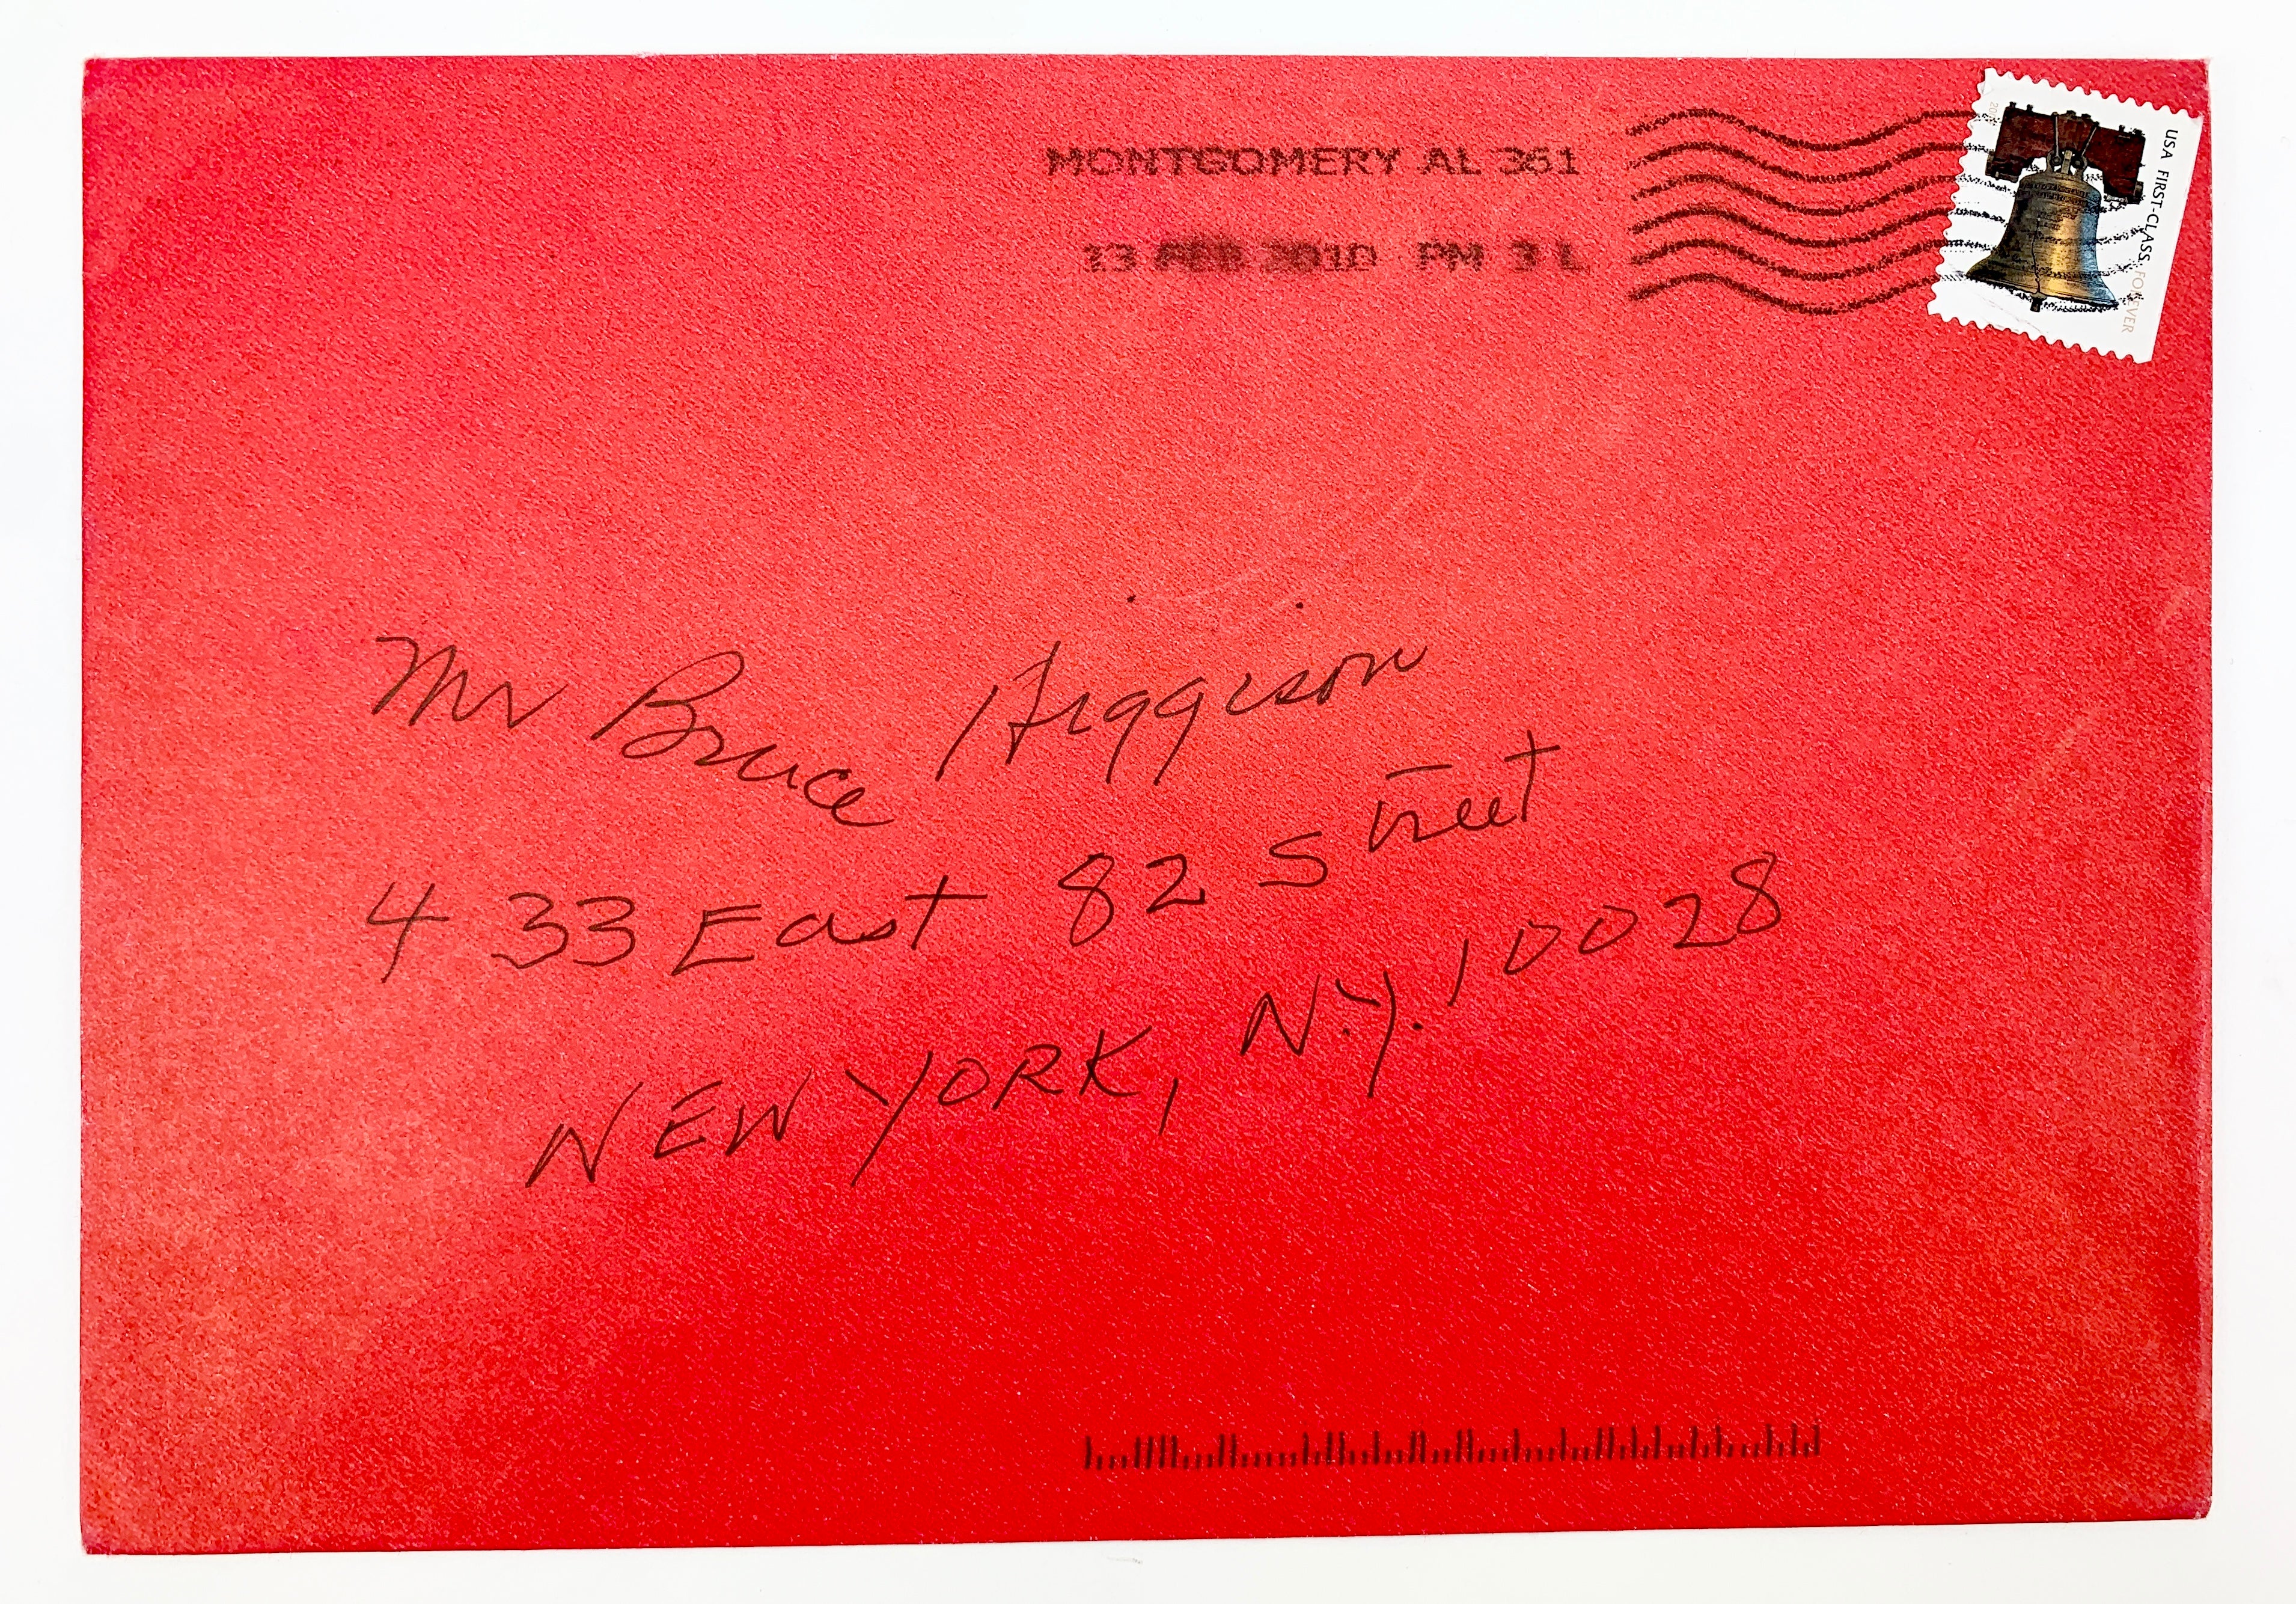 MONTGOMERY AL 361
13 FEB 2010 PM 3 L
USA FIRST-CLASS FOREVER
Mr Bruce Higgison
433 East 82 Street
NEW YORK, N.Y. 10028